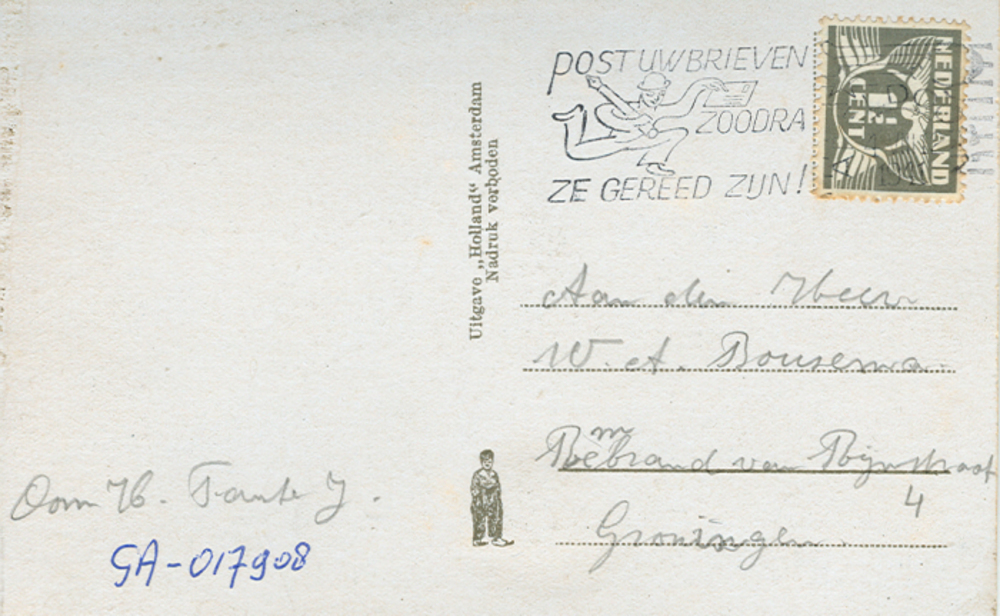 POST UW BRIEVEN
ZOODRA
ZE GEREED ZIJN!
NEDERLAND
1½
CENT
Uitgave „Holland“ Amsterdam
Nadruk verboden
Aan den Heer
W. A. Bousema.
Rembrand van Rijnstraat
4
Groningen.
Oom H. Tante J.
GA-017908